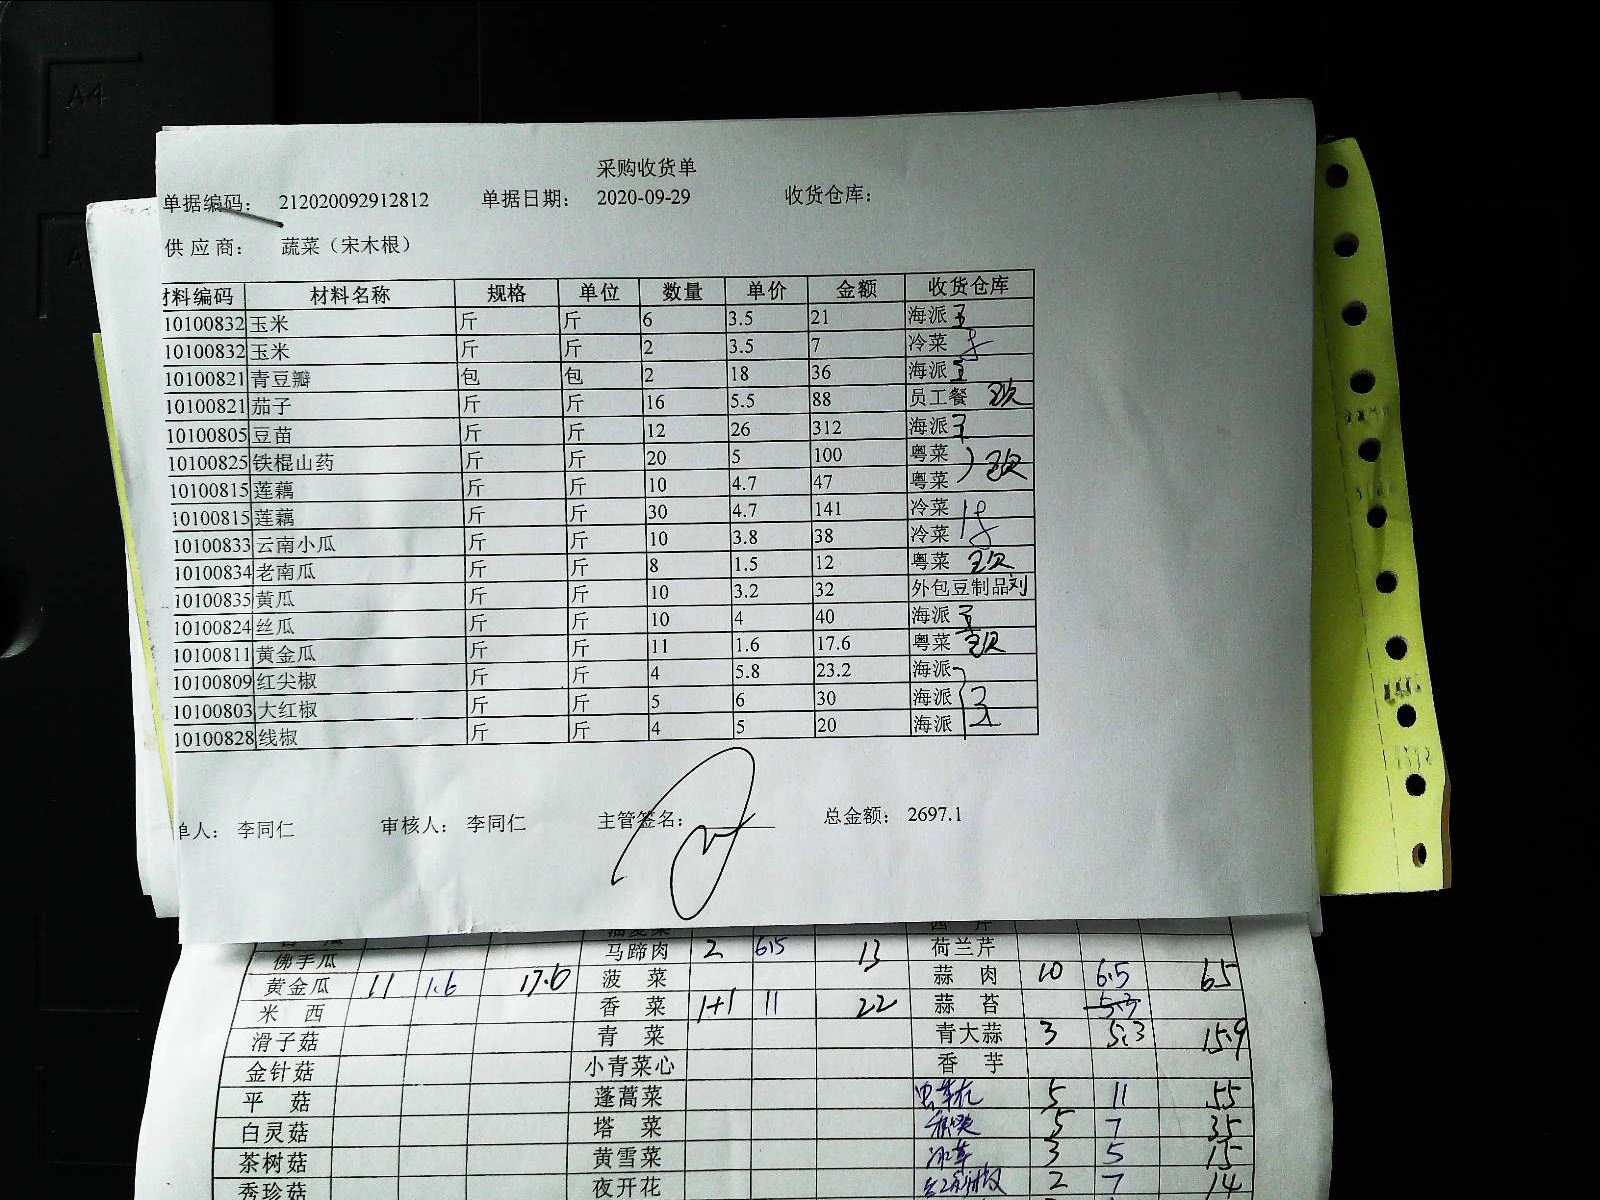 A4
采购收货单
单据编码： 212020092912812 单据日期： 2020-09-29 收货仓库：
供应商： 蔬菜（宋木根）
材料编码 材料名称 规格 单位 数量 单价 金额 收货仓库
10100832 玉米 斤 斤 6 3.5 21 海派 王
10100832 玉米 斤 斤 2 3.5 7 冷菜
10100821 青豆瓣 包 包 2 18 36 海派 王
10100821 茄子 斤 斤 16 5.5 88 员工餐
10100805 豆苗 斤 斤 12 26 312 海派 王
10100825 铁棍山药 斤 斤 20 5 100 粤菜
10100815 莲藕 斤 斤 10 4.7 47 粤菜
10100815 莲藕 斤 斤 30 4.7 141 冷菜
10100833 云南小瓜 斤 斤 10 3.8 38 冷菜
10100834 老南瓜 斤 斤 8 1.5 12 粤菜
10100835 黄瓜 斤 斤 10 3.2 32 外包豆制品 刘
10100824 丝瓜 斤 斤 10 4 40 海派 王
10100811 黄金瓜 斤 斤 11 1.6 17.6 粤菜
10100809 红尖椒 斤 斤 4 5.8 23.2 海派
10100803 大红椒 斤 斤 5 6 30 海派 王
10100828 线椒 斤 斤 4 5 20 海派
单人： 李同仁 审核人： 李同仁 主管签名： 总金额： 2697.1
西芹
佛手瓜 马蹄肉 2 6.5 13 荷兰芹
黄金瓜 11 1.6 17.6 菠菜 蒜肉 10 6.5 65
米西 香菜 1+1 11 22 蒜苔 5.3
滑子菇 青菜 青大蒜 3 5.3 15.9
金针菇 小青菜心 香芋
平菇 蓬蒿菜 虫草花 5 11 55
白灵菇 塔菜 5 7 35
茶树菇 黄雪菜 冰草 3 5 15
秀珍菇 夜开花 2 7 14